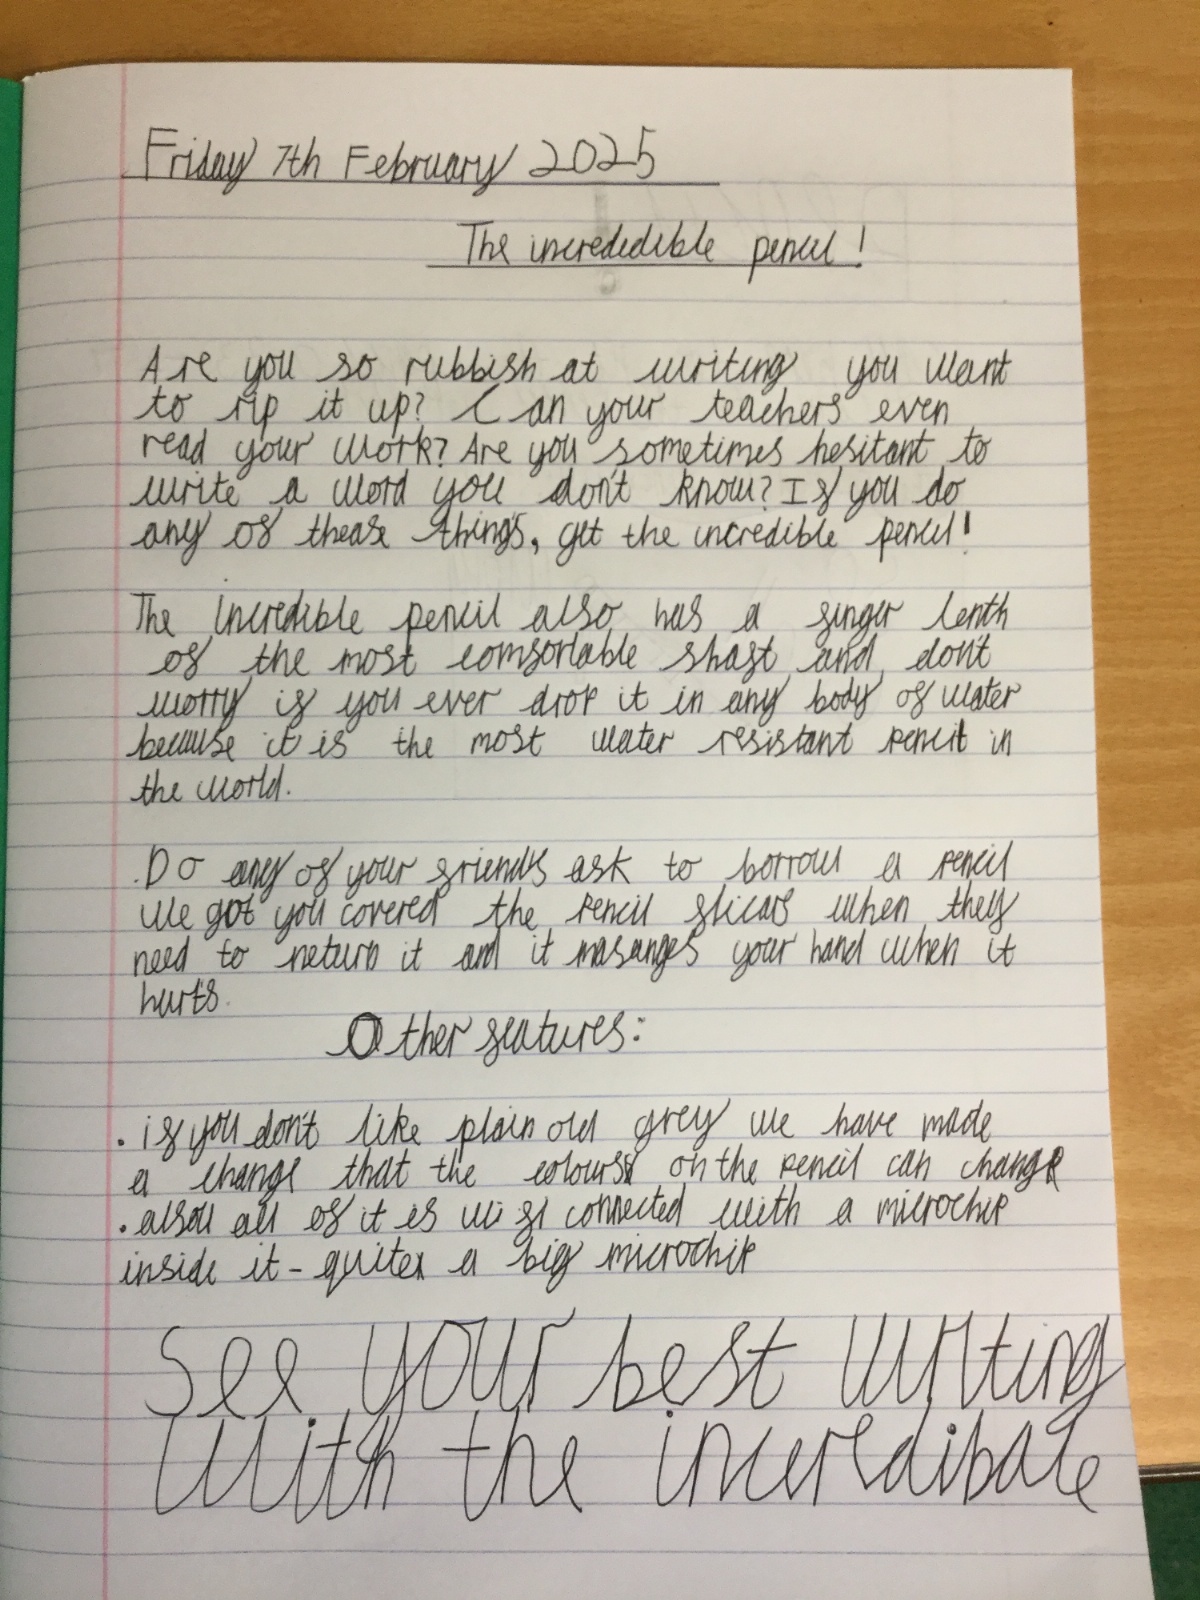 Friday 7th February 2025
The incrededible pencil!
Are you so rubbish at writing you want
to rip it up? Can your teachers even
read your work? Are you sometimes hesitant to
write a word you don't know? If you do
any of thease things, get the incredible pencil!
The incredible pencil also has a finger lenth
of the most comfortable shaft and don't
worry if you ever drop it in any body of water
because it is the most water resistant pencil in
the world.
Do any of your friends ask to borrow a pencil
we got you covered the pencil flicars when they
need to return it and it masanges your hand when it
hurts.
Other features:
. if you don't like plain old grey we have made
a change that the colours on the pencil can change
. also all of it is wifi connected with a microchip
inside it - quite a big microchip
See your best writing
with the incredibale